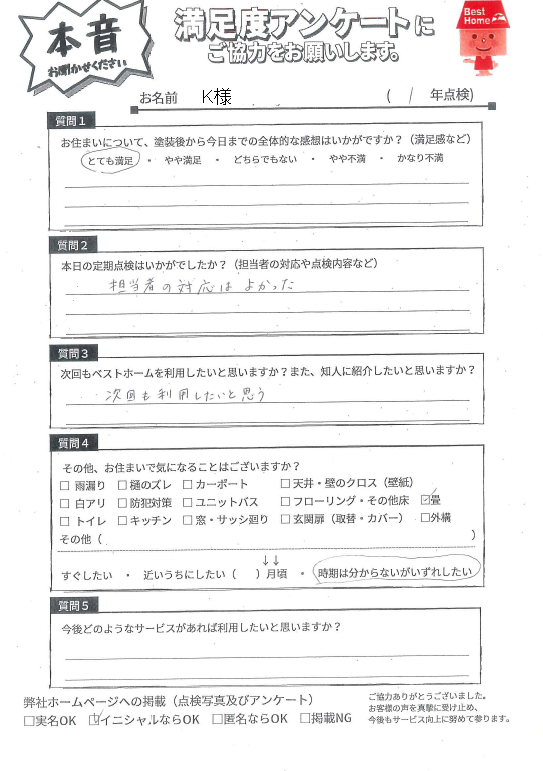 本音
お聞かせください
満足度アンケートに
ご協力をお願いします。
Best Home
お名前 K様 ( 1 年点検)
質問1
お住まいについて、塗装後から今日までの全体的な感想はいかがですか？（満足感など）
とても満足 ・ やや満足 ・ どちらでもない ・ やや不満 ・ かなり不満
質問2
本日の定期点検はいかがでしたか？（担当者の対応や点検内容など）
担当者の対応は よかった
質問3
次回もベストホームを利用したいと思いますか？また、知人に紹介したいと思いますか？
次回も利用したいと思う
質問4
その他、お住まいで気になることはございますか？
□ 雨漏り □ 樋のズレ □ カーポート □ 天井・壁のクロス（壁紙）
□ 白アリ □ 防犯対策 □ ユニットバス □ フローリング・その他床 ☑畳
□ トイレ □ キッチン □ 窓・サッシ廻り □ 玄関扉（取替・カバー） □外構
その他（ ）
↓↓
すぐしたい ・ 近いうちにしたい（ ）月頃 ・ 時期は分からないがいずれしたい
質問5
今後どのようなサービスがあれば利用したいと思いますか？
弊社ホームページへの掲載（点検写真及びアンケート）
□実名OK ☑イニシャルならOK □匿名ならOK □掲載NG
ご協力ありがとうございました。
お客様の声を真摯に受け止め、
今後もサービス向上に努めて参ります。